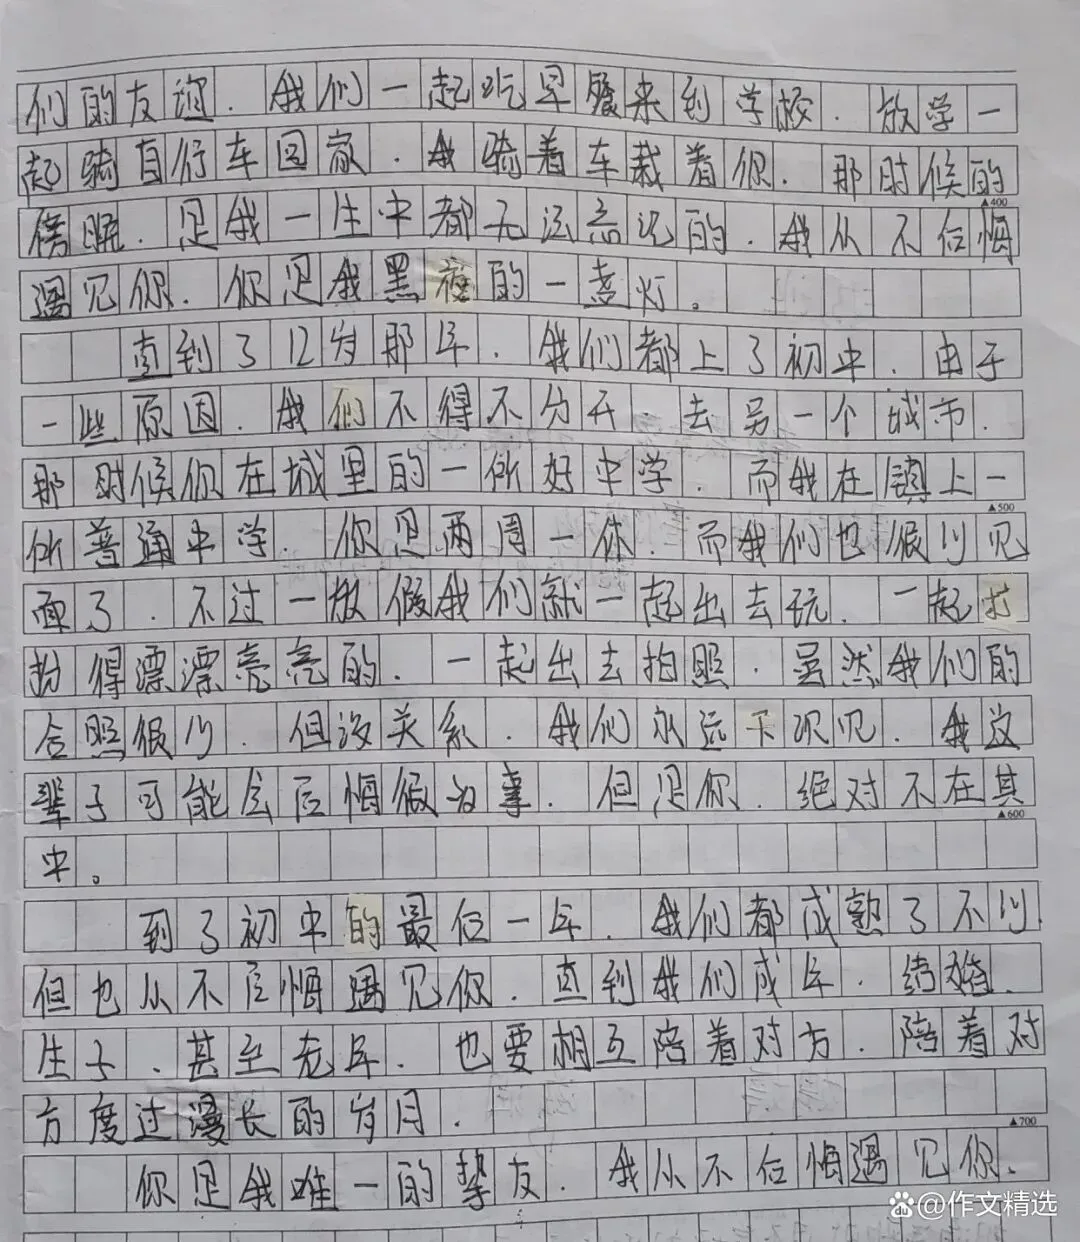 们的友谊，我们一起吃早餐来到学校，放学一
起骑自行车回家，我骑着车载着你，那时候的
傍晚，是我一生中都无法忘记的，我从不后悔
▲400
遇见你，你是我黑夜的一盏灯。
直到了12岁那年，我们都上了初中，由于
一些原因，我们不得不分开 去另一个城市，
那时候你在城里的一所好中学，而我在镇上一
▲500
所普通中学，你是两周一休，而我们也很少见
面了，不过一放假我们就一起出去玩，一起打
扮得漂漂亮亮的，一起出去拍照，虽然我们的
合照很少，但没关系，我们永远下次见，我这
辈子可能会后悔很多事，但是你，绝对不在其
▲600
中。
到了初中的最后一年，我们都成熟了不少，
但也从不后悔遇见你，直到我们成年，结婚，
生子，甚至老年，也要相互陪着对方，陪着对
方度过漫长的岁月．
▲700
你是我唯一的挚友，我从不后悔遇见你．
Baidu @作文精选